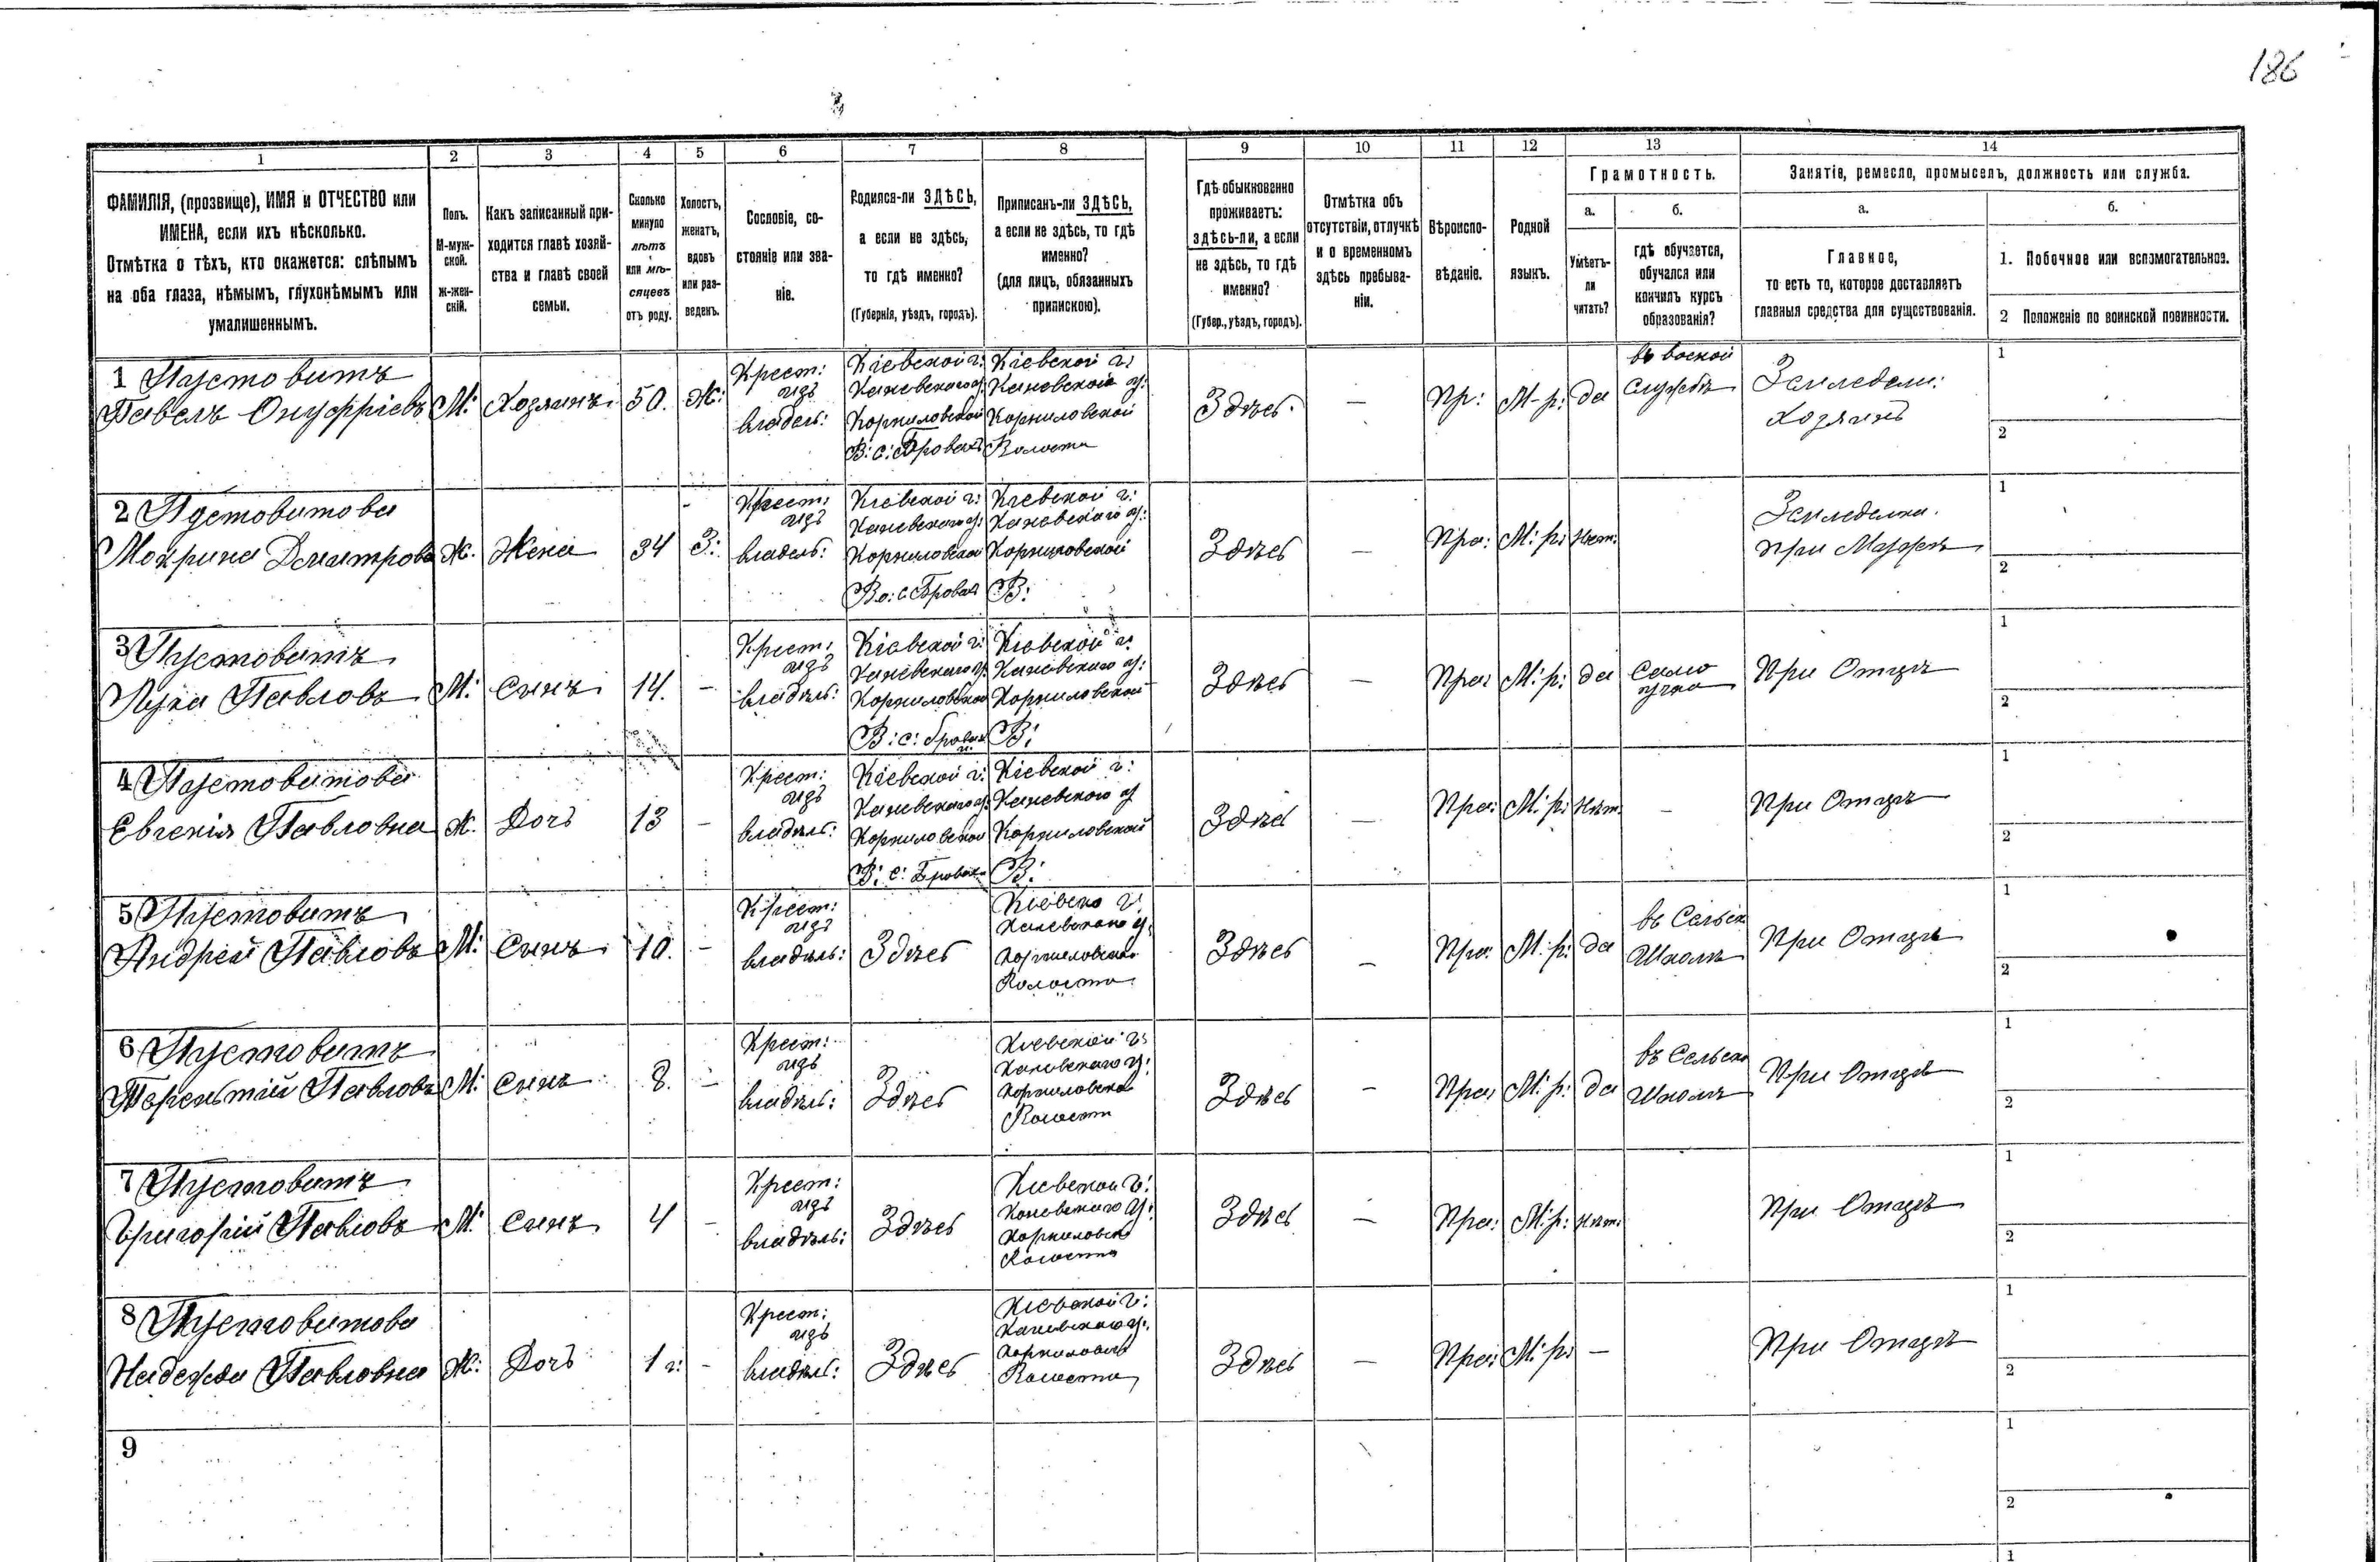 186
3
1 2 3 4 5 6 7 8 9 10 11 12 13 14
ФАМИЛІЯ, (прозвище), ИМЯ и ОТЧЕСТВО или
ИМЕНА, если ихъ нѣсколько.
Отмѣтка о тѣхъ, кто окажется: слѣпымъ
на оба глаза, нѣмымъ, глухонѣмымъ или
умалишеннымъ.
Полъ.
М-муж-
ской.
Ж-жен-
скій.
Какъ записанный при-
ходится главѣ хозяй-
ства и главѣ своей
семьи.
Сколько
минуло
лѣтъ
или мѣ-
сяцевъ
отъ роду.
Холостъ,
женатъ,
вдовъ
или раз-
веденъ.
Сословіе, со-
стояніе или зва-
ніе.
Родился-ли ЗДѢСЬ,
а если не здѣсь,
то гдѣ именно?
(Губернія, уѣздъ, городъ).
Приписанъ-ли ЗДѢСЬ,
а если не здѣсь, то гдѣ
именно?
(для лицъ, обязанныхъ
припискою).
Гдѣ обыкновенно
проживаетъ:
здѣсь-ли, а если
не здѣсь, то гдѣ
именно?
(Губер., уѣздъ, городъ).
Отмѣтка объ
отсутствіи, отлучкѣ
и о временномъ
здѣсь пребыва-
ніи.
Вѣроиспо-
вѣданіе.
Родной
языкъ.
Грамотность.
а.
Умѣетъ-
ли
читать?
б.
гдѣ обучается,
обучался или
кончилъ курсъ
образованія?
Занятіе, ремесло, промыселъ, должность или служба.
а.
Главное,
то есть то, которое доставляетъ
главныя средства для существованія.
б.
1. Побочное или вспомогательное.
2 Положеніе по воинской повинности.
1 Пустовитъ
Павелъ Онуфріевъ
М:
Хозяинъ
50.
Ж:
Крест:
изъ
владѣль:
Кіевской г:
Каневскаго у:
Корниловской
В: с: Бровах
Кіевской г:
Каневского у:
Корниловской
Волости
Здѣсь.
—
Пр:
М-р:
да
въ военой
службѣ
Земледели:
Хозяинъ
1
2
2 Пустовитова
Мокрина Дмитрова
Ж.
Жена
34
З:
Крест:
изъ
владель:
Кіевской г:
Каневскаго у:
Корниловской
Во: с Бровах
Кіевской г:
Каневскаго у:
Корниловской
В:
Здѣсь
—
Пра:
М: р:
Нет:
Земледелка.
при Мужѣ
1
2
3 Пустовитъ
Лука Павловъ
М:
Сынъ
14.
-
Крест:
изъ
владѣль:
Кіевской г:
Каневскаго у:
Корниловской
В: с: Бровах
Кіевской г:
Каневскаго у:
Корниловской
В:
Здѣсь
—
Пра:
М: р:
да
Само
учка
При Отцѣ
1
2
4 Пустовитова
Евгенія Павловна
Ж.
Дочь
13
-
Крест:
изъ
владѣль:
Кіевской г:
Каневскаго у:
Корниловской
В: с: Бровах
Кіевской г:
Каневского у
Корниловской
В:
Здѣсь
—
Пра:
М: р:
Нѣт:
-
При Отцѣ
1
2
5 Пустовитъ
Андрей Павловъ
М:
Сынъ
10.
-
Крест:
изъ
владѣль:
Здѣсь
Кіевско г:
Каневскаго у:
Корниловской
Волости
Здѣсь
—
Пра:
М: р:
да
въ Сельск
Школѣ
При Отцѣ
1
2
6 Пустовитъ
Терентій Павловъ
М:
Сынъ
8.
-
Крест:
изъ
владѣль:
Здѣсь
Кіевской г:
Каневскаго у:
Корниловской
Волости
Здѣсь
-
Пра:
М: р:
да
въ Сельско
Школѣ
При Отцѣ
1
2
7 Пустовитъ
Григорій Павловъ
М:
Сынъ
4
-
Крест:
изъ
владѣль:
Здѣсь
Кіевской г:
Каневскаго у:
Корниловск
Волости
Здѣсь
—
Пра:
М: р:
Нѣт:
При Отцѣ
1
2
8 Пустовитова
Надежда Павловна
Ж:
Дочь
1 г:
-
Крест:
изъ
владѣль:
Здѣсь
Кіевской г:
Каневскаго у:
Корниловск
Волости
Здѣсь
—
Пра:
М: р:
—
При Отцѣ
1
2
9
1
2
1